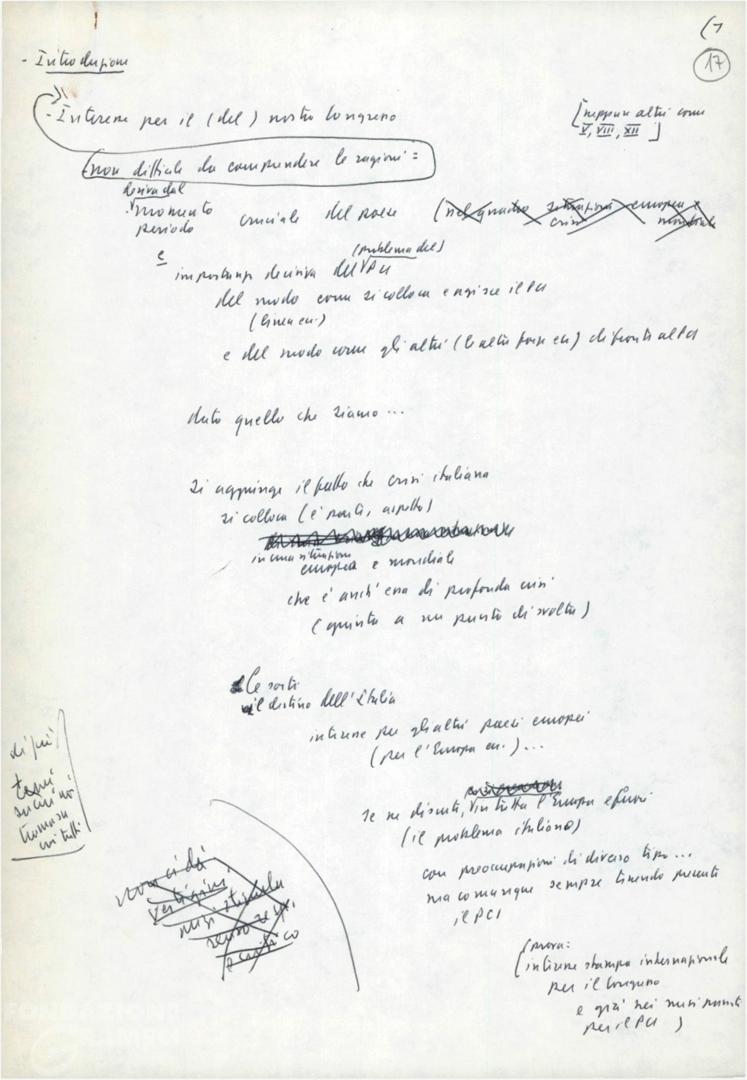 (1
17
- Introduzione
- Interesse per il (del) nostro Congresso
[neppure altri come
V, VIII, XII]
(non difficile da comprendere le ragioni:
deriva dal
momento cruciale del paese (nel quadro situazioni europea e
periodo crisi mondiale
e (problema del)
importanza decisiva del PCI
del modo come si colloca e agisce il PCI
(linea ecc.)
e del modo come gli altri (le altre forze ecc) di fronte al PCI
dato quello che siamo...
si aggiunge il fatto che crisi italiana
si colloca (è parte, aspetto)
in una situazione
europea e mondiale
che è anch'essa di profonda crisi
(giunta a un punto di svolta)
Le sorti
il destino dell'Italia
interesse per gli altri paesi europei
(per l'Europa ecc.)...
se ne discute, in tutta l'Europa e fuori
(il problema italiano)
con preoccupazioni di diverso tipo...
ma comunque sempre tenendo presente
il PCI
(prova:
(interesse stampa internazionale
per il Congresso
e già nei mesi passati
per il PCI)
di più
temi
su cui noi
tutti
non ci dà
vertigini
ma stimola
senso
FONDAZIONE